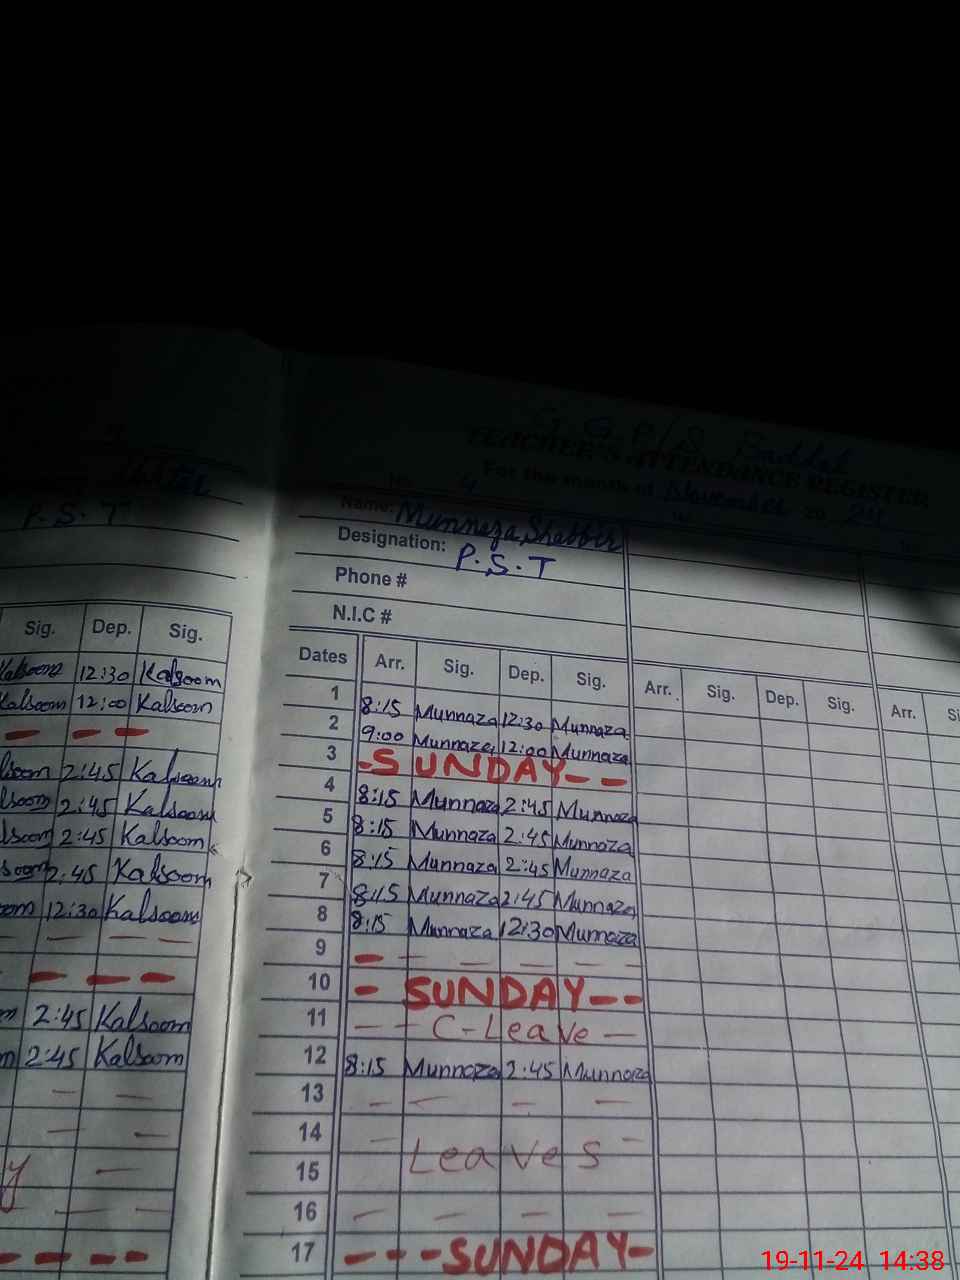 G. G. P/S
TEACHER'S ATTENDANCE REGISTER
For the month of November 20 24
No. 4
P.S.T
Name: Munnaza Shabbir
Designation: P.S.T
Phone #
N.I.C #
Sig. Dep. Sig.
Kalsoom 12:30 Kalsoom
Kalsoom 12:00 Kalsoom
— — —
lsoom 2:45 Kalsoom
lsoom 2:45 Kalsoom
lsoom 2:45 Kalsoom
soom 2:45 Kalsoom
oom 12:30 Kalsoom
— — — —
— — —
m 2:45 Kalsoom
m 2:45 Kalsoom
— —
— —
y —
— —
— — — —
Dates Arr. Sig. Dep. Sig. Arr. Sig. Dep. Sig. Arr. Si
1 8:15 Munnaza 12:30 Munnaza
2 9:00 Munnaza 12:00 Munnaza
3 - SUNDAY - -
4 8:15 Munnaza 2:45 Munnaza
5 8:15 Munnaza 2:45 Munnaza
6 8:15 Munnaza 2:45 Munnaza
7 8:15 Munnaza 2:45 Munnaza
8 8:15 Munnaza 12:30 Munnaza
9 — — — — —
10 - SUNDAY - -
11 — — C-Leave —
12 8:15 Munnaza 2:45 Munnaza
13 — — — —
14 — —
15 Leaves
16 — — — —
17 - - - SUNDAY -
19-11-24 14:38